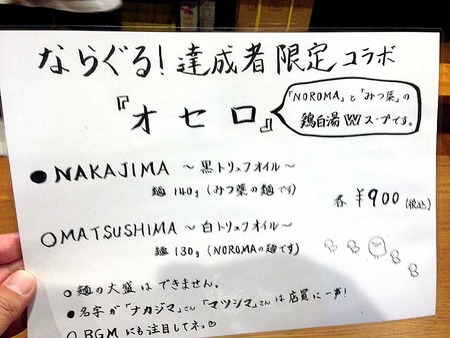 ならぐる!達成者限定コラボ
『オセロ』
「NOROMA」と「みつ葉」の
鶏白湯Wスープです。
●NAKAJIMA ～黒トリュフオイル～
麺140g(みつ葉の麺です)
各¥900(税込)
○MATSUSHIMA ～白トリュフオイル～
麺130g(NOROMAの麺です)
○麺の大盛はできません。
●名字が「ナカジマ」さん「マツシマ」さんは店員に一声!
○BGMにも注目してネ♡